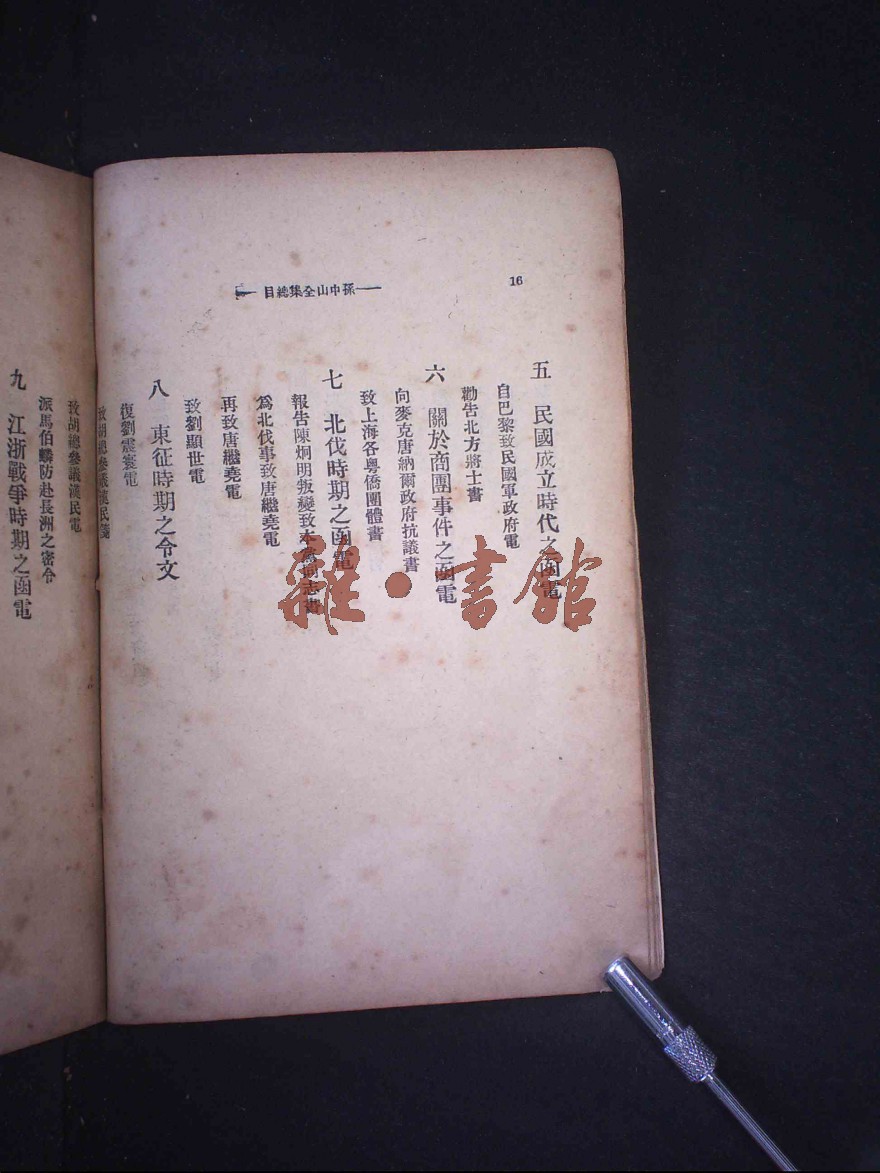 16
孫中山全集總目
五　民國成立時代之函電
自巴黎致民國軍政府電
勸告北方將士書
六　關於商團事件之函電
向麥克唐納爾政府抗議書
致上海各粵僑團體書
七　北伐時期之函電
報告陳炯明叛變致本黨同志書
爲北伐事致唐繼堯電
再致唐繼堯電
致劉顯世電
八　東征時期之令文
復劉震寰電
致胡總參議漢民箋
致胡總參議漢民電
派馬伯麟防赴長洲之密令
九　江浙戰爭時期之函電
雜·書館